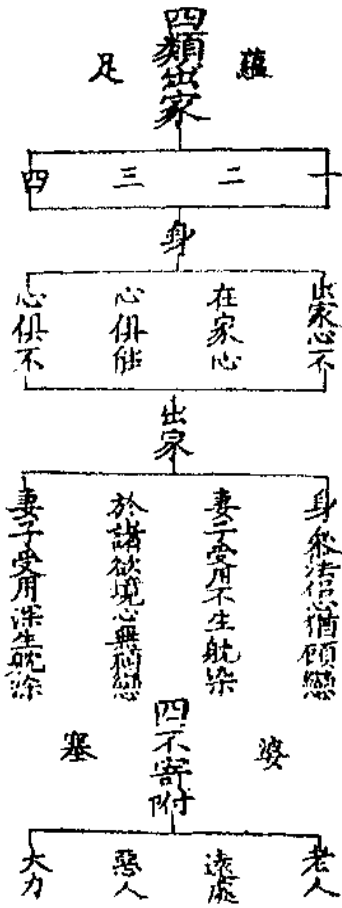 四類出家
蘊足
一
二
三
四
身
出家心不
在家心
心俱能
心俱不
出家
身叅法侶心猶顧戀
妻子受用不生躭染
於諸欲境心無顧戀
妻子受用深生躭染
四不寄附
婆塞
老人
遠處
惡人
大力